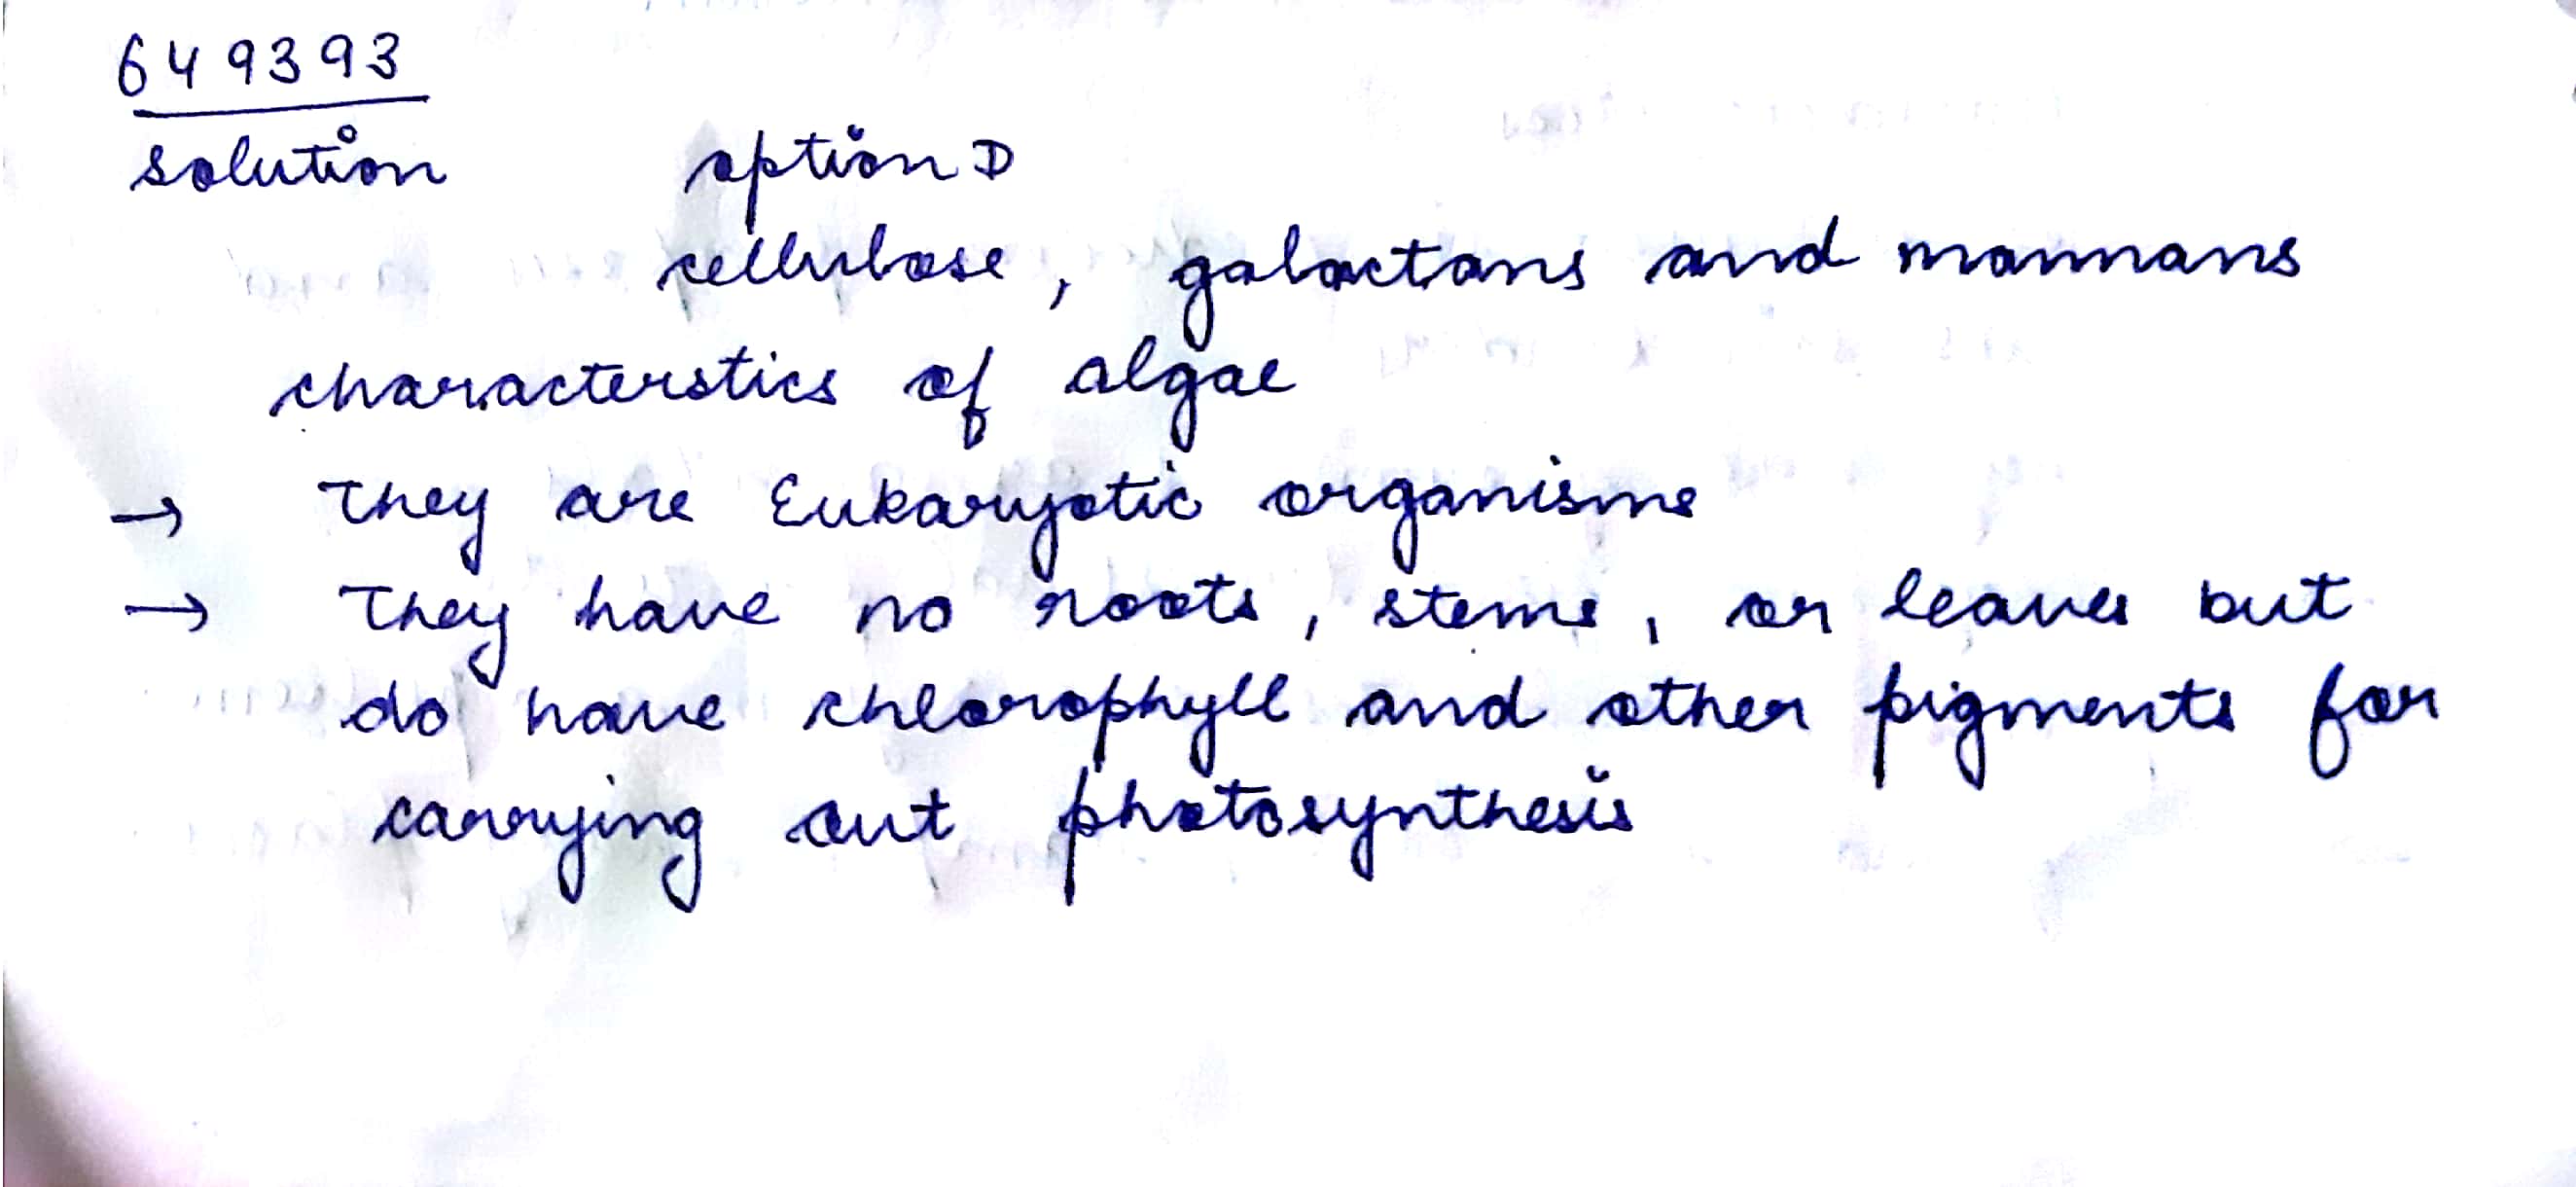 649393
solution option D
cellulose, galactans and mannans
characterstics of algae
→ They are Eukaryotic organisms
→ They have no roots, stems, or leaves but
do have chlorophyll and other pigments for
carrying out photosynthesis